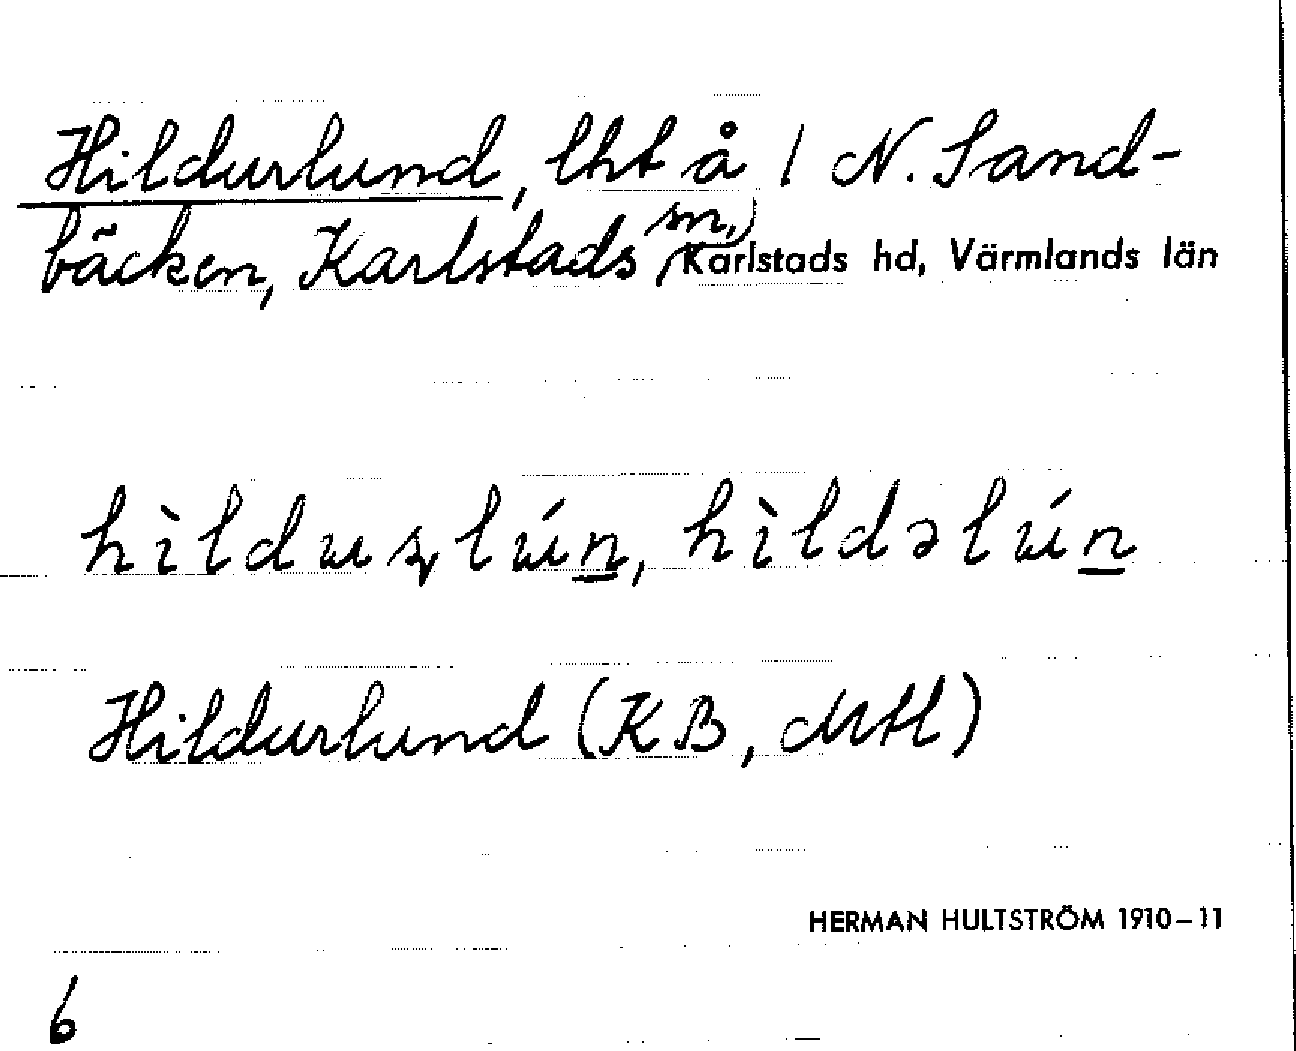 Hildurlund, lht å 1 N. Sand-
bäcken, Karlstads sn, Karlstads hd, Värmlands län
hìlduꭇlún, hìldəlún
Hildurlund (KB, MH)
HERMAN HULTSTRÖM 1910–11
6